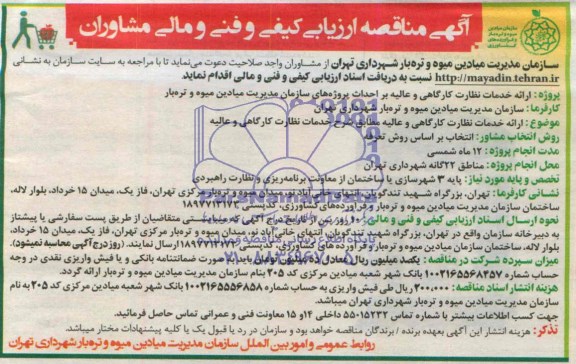 آگهی مناقصه ارزیابی کیفی و فنی و مالی مشاوران
سازمان مدیریت میادین میوه و تره‌بار شهرداری تهران از مشاوران واجد صلاحیت دعوت می‌نماید تا با مراجعه به سایت سازمان به نشانی
http://mayadin.tehran.ir نسبت به دریافت اسناد ارزیابی کیفی و فنی و مالی اقدام نماید
پروژه : ارائه خدمات نظارت کارگاهی و عالیه بر احداث پروژه‌های سازمان مدیریت میادین میوه و تره‌بار
کارفرما : سازمان مدیریت میادین میوه و تره‌بار شهرداری تهران
موضوع : ارائه خدمات نظارت کارگاهی و عالیه مطابق شرح خدمات نظارت کارگاهی و عالیه
روش انتخاب مشاور: انتخاب بر اساس روش تعرفه
مدت انجام پروژه : ۱۲ ماه شمسی
محل انجام پروژه : مناطق ۲۲گانه شهرداری تهران
تخصص و پایه مورد نیاز : پایه ۳ شهرسازی یا ساختمان از معاونت برنامه‌ریزی و نظارت راهبردی
نشانی کارفرما : تهران، بزرگراه شهید تندگویان، انتهای خانی آباد نو، میدان میوه و تره‌بار مرکزی تهران، فاز یک، میدان ۱۵ خرداد، بلوار لاله،
ساختمان سازمان میادین میوه و تره‌بار و فرآورده‌های کشاورزی، کدپستی
نحوه ارسال اسناد ارزیابی کیفی و فنی و مالی : ۱۰ روز پس از تاریخ درج آگهی که متقاضیان از طریق پست سفارشی یا پیشتاز
به دبیرخانه سازمان واقع در تهران، بزرگراه شهید تندگویان، انتهای خانی آباد نو، میدان میوه و تره‌بار مرکزی تهران، فاز یک، میدان ۱۵ خرداد،
بلوار لاله، ساختمان سازمان میادین میوه و تره‌بار و فرآورده‌های کشاورزی، کدپستی ارسال نمایند. (روز درج آگهی محاسبه نمیشود).
میزان سپرده شرکت در مناقصه : یکصد میلیون ریال معادل ده میلیون تومان باید بصورت ضمانتنامه بانکی و یا فیش واریزی نقدی در وجه
حساب شماره ۱۰۰۲۱۶۵۵۶۸۴۵۷ بانک شهر شعبه میادین مرکزی کد ۲۰۵ بنام سازمان مدیریت میادین میوه و تره‌بار ارائه گردد.
هزینه انتشار اسناد مناقصه : ۲۰۰.۰۰۰ ریال طی فیش واریزی به حساب شماره ۱۰۰۲۱۶۵۵۵۶۸۵۸ بانک شهر شعبه میادین مرکزی کد ۲۰۵ به نام
سازمان مدیریت میادین میوه و تره‌بار شهرداری تهران میباشد.
جهت کسب اطلاعات بیشتر با شماره تماس ۱۵۲۳۲-۵۵۰ داخلی ۱۴ و ۱۵ معاونت فنی و عمرانی تماس حاصل فرمائید.
تذکر : هزینه انتشار این آگهی بعهده برنده / برندگان مناقصه خواهد بود و سازمان در رد یا قبول یک یا کلیه پیشنهادات مختار میباشد.
روابط عمومی و امور بین الملل سازمان مدیریت میادین میوه و تره‌بار شهرداری تهران